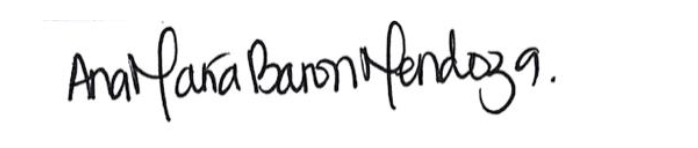 Ana María Baron Mendoza.